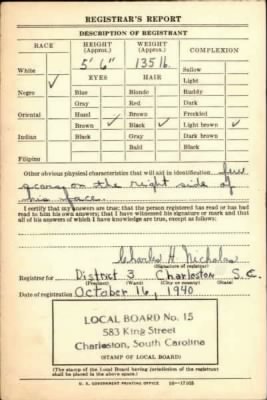 REGISTRAR'S REPORT
DESCRIPTION OF REGISTRANT
RACE HEIGHT (Approx.) WEIGHT (Approx.) COMPLEXION
5' 6" 135 lb.
White ✓ EYES HAIR Sallow
Light
Negro Blue Blonde Ruddy
Gray Red Dark
Oriental Hazel Brown Freckled
Brown ✓ Black ✓ Light brown ✓
Indian Black Gray Dark brown
Bald Black
Filipino
Other obvious physical characteristics that will aid in identification few
scars on the right side of
his face.
I certify that my answers are true; that the person registered has read or has had
read to him his own answers; that I have witnessed his signature or mark and that
all of his answers of which I have knowledge are true, except as follows:
Charles H. Nicholas
(Signature of registrar)
Registrar for District 3 Charleston S.C.
(Precinct) (Ward) (City or county) (State)
Date of registration October 16, 1940
LOCAL BOARD No. 15
583 King Street
Charleston, South Carolina
(STAMP OF LOCAL BOARD)
(The stamp of the Local Board having jurisdiction of the registrant
shall be placed in the above space.)
U. S. GOVERNMENT PRINTING OFFICE 16—17105